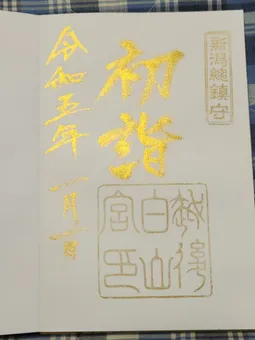 新潟總鎮守
初詣
越後
白山
宮印
令和五年一月一日